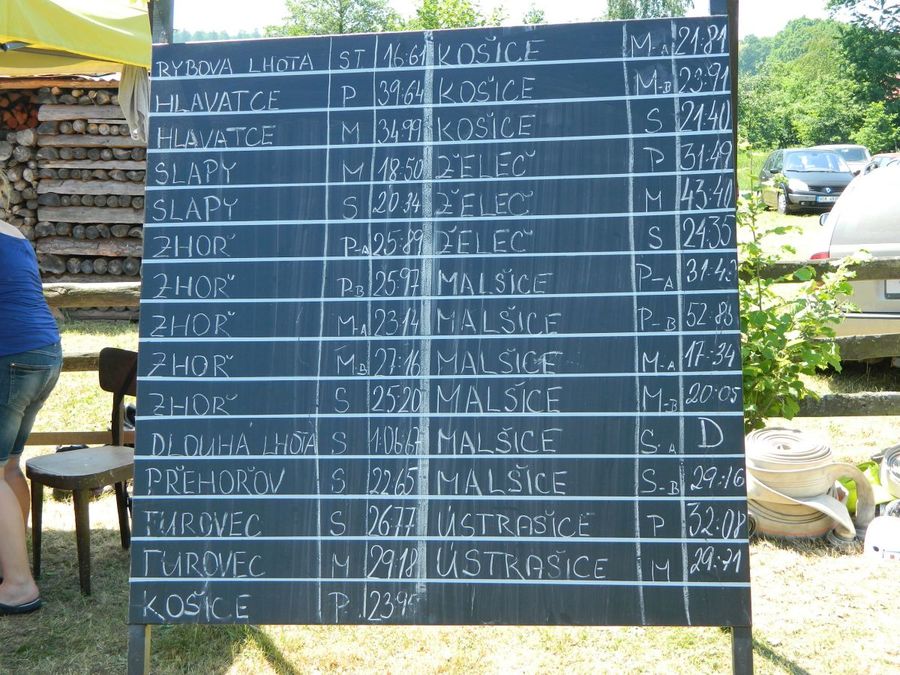 RYBOVA LHOTA ST 16:61 KOŠICE M-A 21:81
HLAVATCE P 39:64 KOŠICE M-B 23:91
HLAVATCE M 34:99 KOŠICE S 21:40
SLAPY M 18:50 ŽELEČ P 31:49
SLAPY S 20:34 ŽELEČ M 43:40
ZHOŘ P-A 25:89 ŽELEČ S 24:35
ZHOŘ P-B 25:97 MALŠICE P-A
ZHOŘ M-A 23:14 MALŠICE P-B 52:88
ZHOŘ M-B 27:16 MALŠICE M-A 17:34
ZHOŘ S 25:20 MALŠICE M-B 20:05
DLOUHÁ LHOTA S MALŠICE S-A D
PŘEHOŘOV S 22:65 MALŠICE S-B 29:16
TUROVEC S 26:77 ÚSTRAŠICE P 32:08
TUROVEC M 29:18 ÚSTRAŠICE M 29:71
KOŠICE P